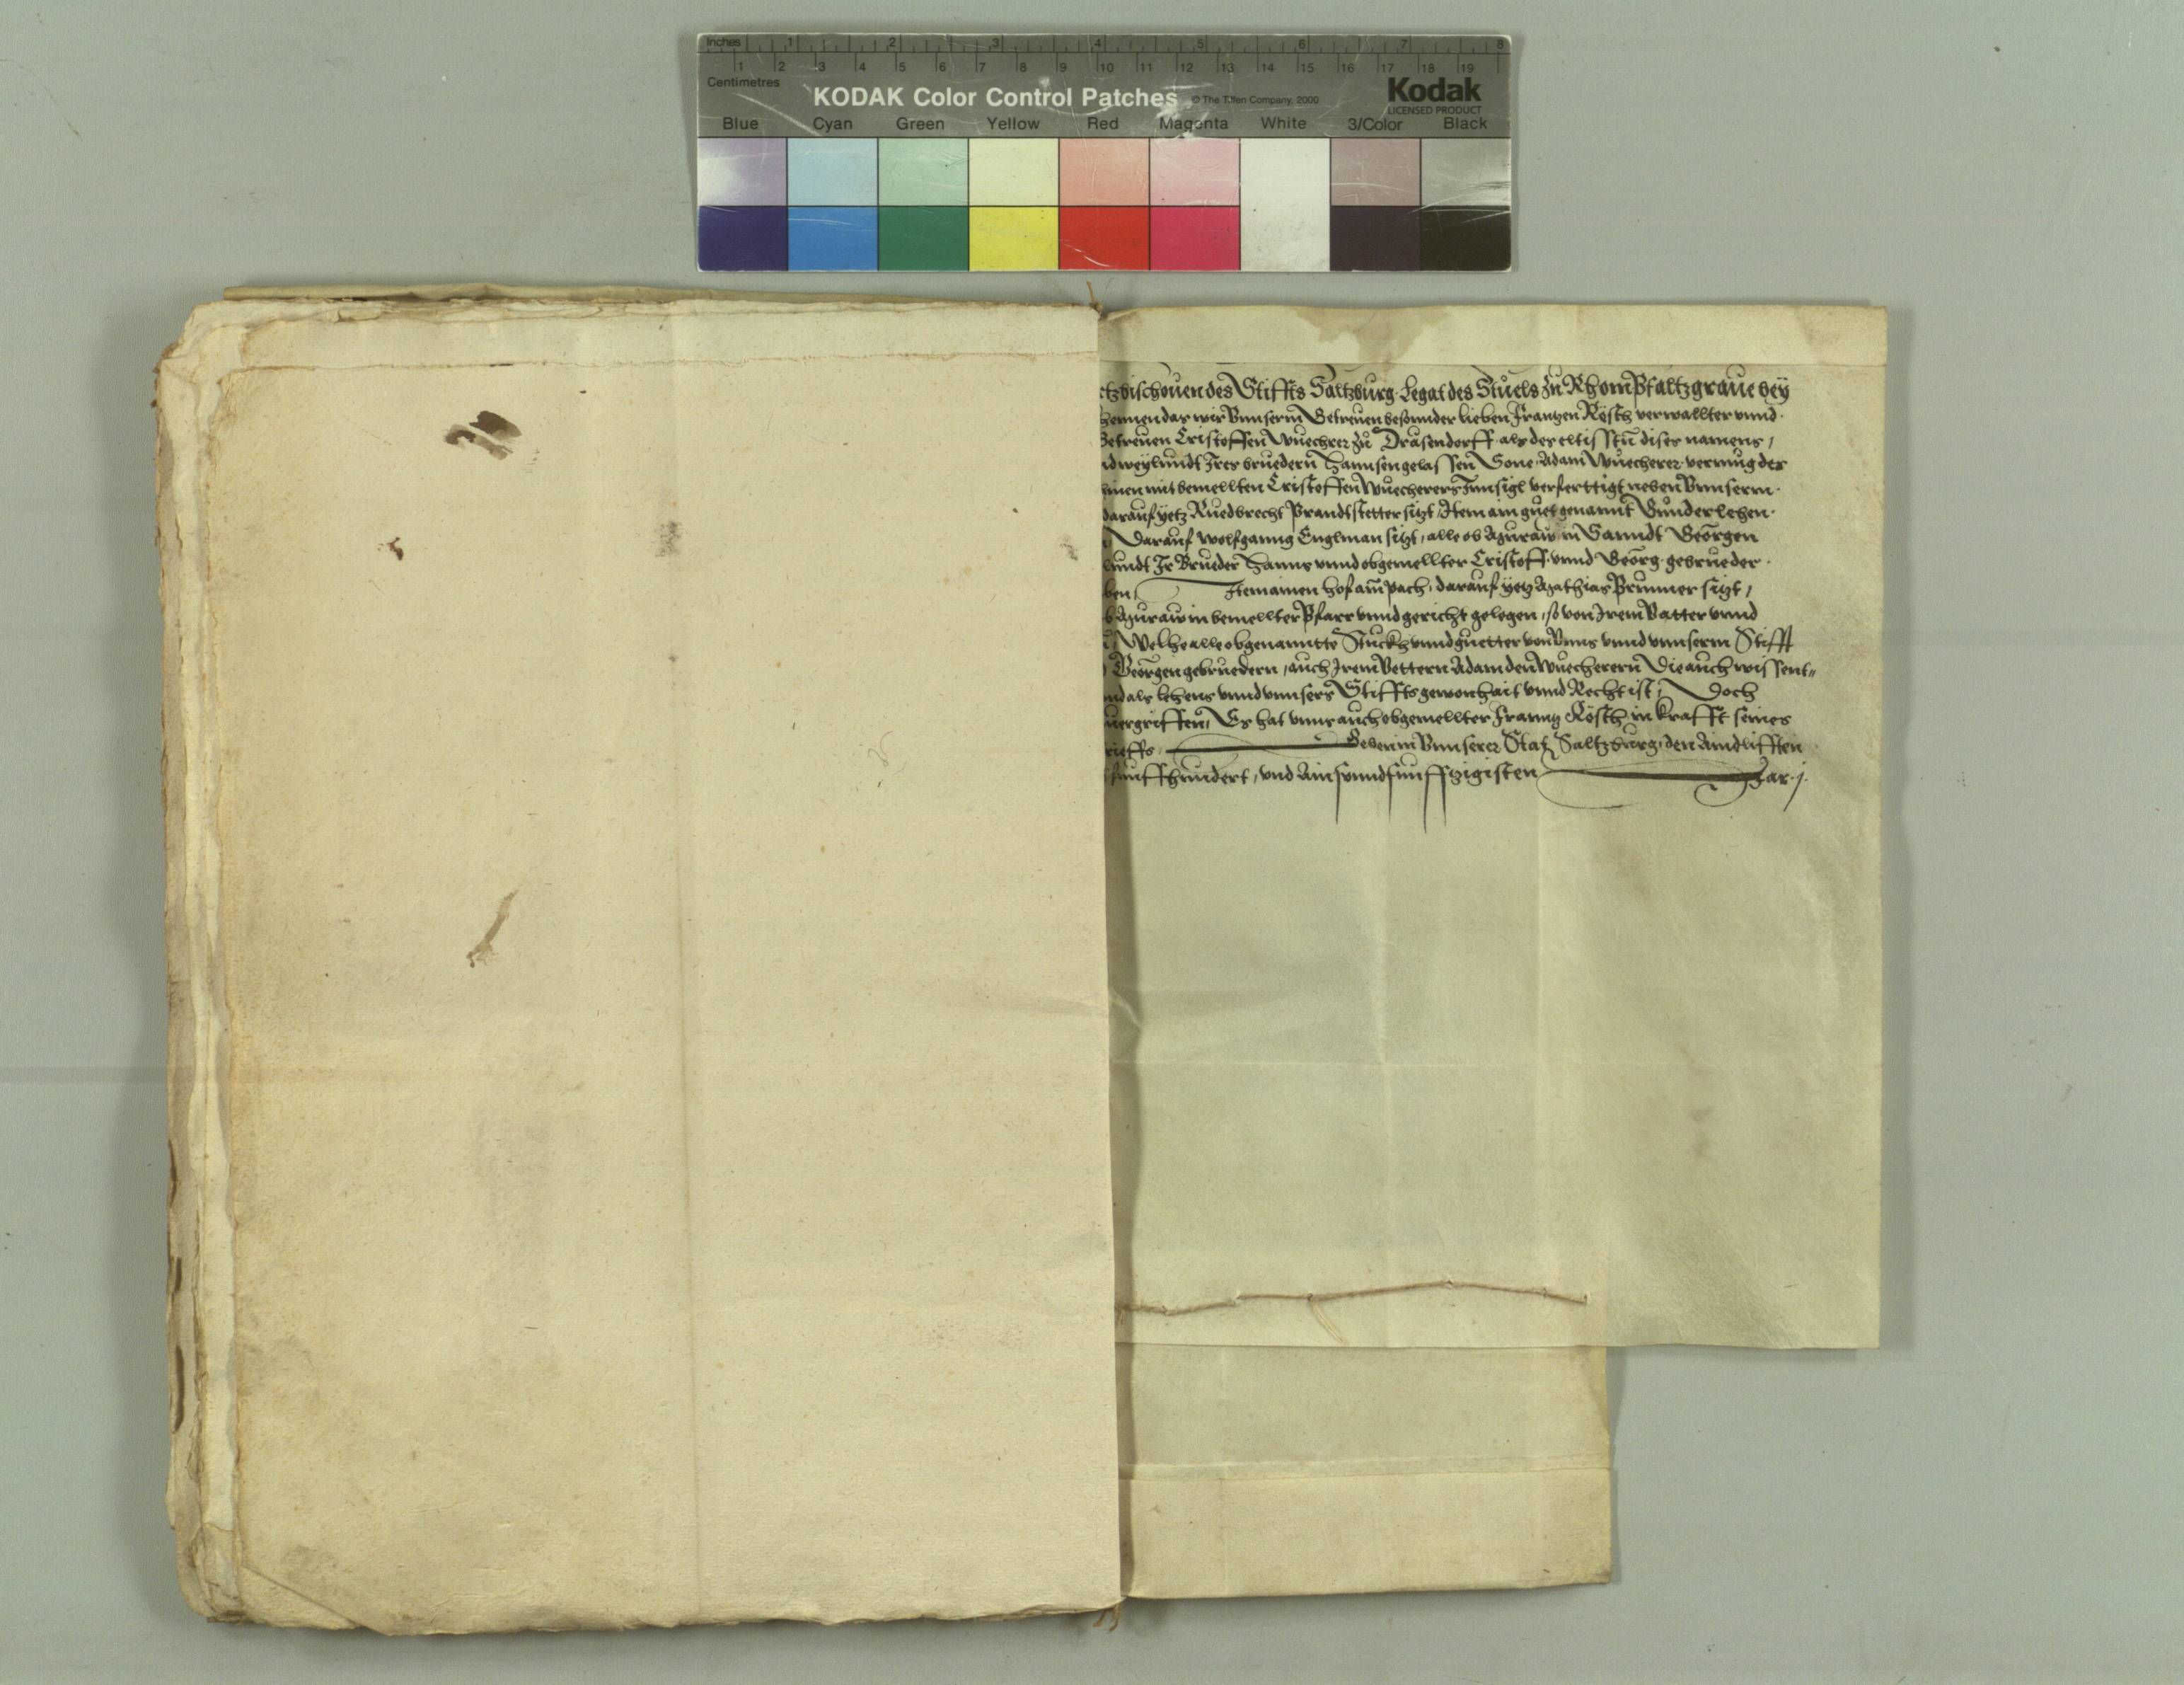 Inches 1 2 3 4 5 6 7 8
1 2 3 4 5 6 7 8 9 10 11 12 13 14 15 16 17 18 19
Centimetres
KODAK Color Control Patches © The Tiffen Company, 2000 Kodak
LICENSED PRODUCT
Blue Cyan Green Yellow Red Magenta White 3/Color Black
tzbischouen des Stiffts Saltzburg Legat des Stuels zu Rhom Pfaltzgraue bey
das wir Vnnserm Getreuen besonnder lieben Franntzen Rösch verwallter vnnd
Getreuen Cristoffen Wuecherer zu Drasendorff als der eltist dises namens,
weylundt Ires bruedern Hannsen gelassen Sone, Adam Wuecherer vermug des
mit bemellten Cristoffen Wuecherers Innsigl verferttigt neben Vnnserm
darauf yetz Ruedbrecht Prandtstetter sizt, Item ain guet genannt Gunderlehen
Darauf Wolfganng Englman sizt, alle ob Muraw in Sanndt Georgen
Ir Brueder Hanns vnnd obgemellter Cristoff vnnd Georg gebrueder
ben, Item ainen hof am pach, darauf yetz Mathias Prunner sizt,
b Muraw in bemellter Pfarr vnnd gericht gelegen, so von Irem Vatter vnnd
Welhe alle obgenanntte Stuckh vnnd guetter von Vnns vnnd vnnserm Stifft
Georgen gebruedern, auch Irem Vettern Adam den Wuecherern Die auch wissent
als lehens vnnd vnnsers Stiffts gewonhait vnnd Recht ist, Doch
uergriffen, Es hat vnns auch obgemellter Franntz Rösch in krafft seines
rieffs, Geben in Vnnserer Stat Saltzburg, den Aindlifften
funffhundert, vnd Ainsvnndfunffzigisten Jar.